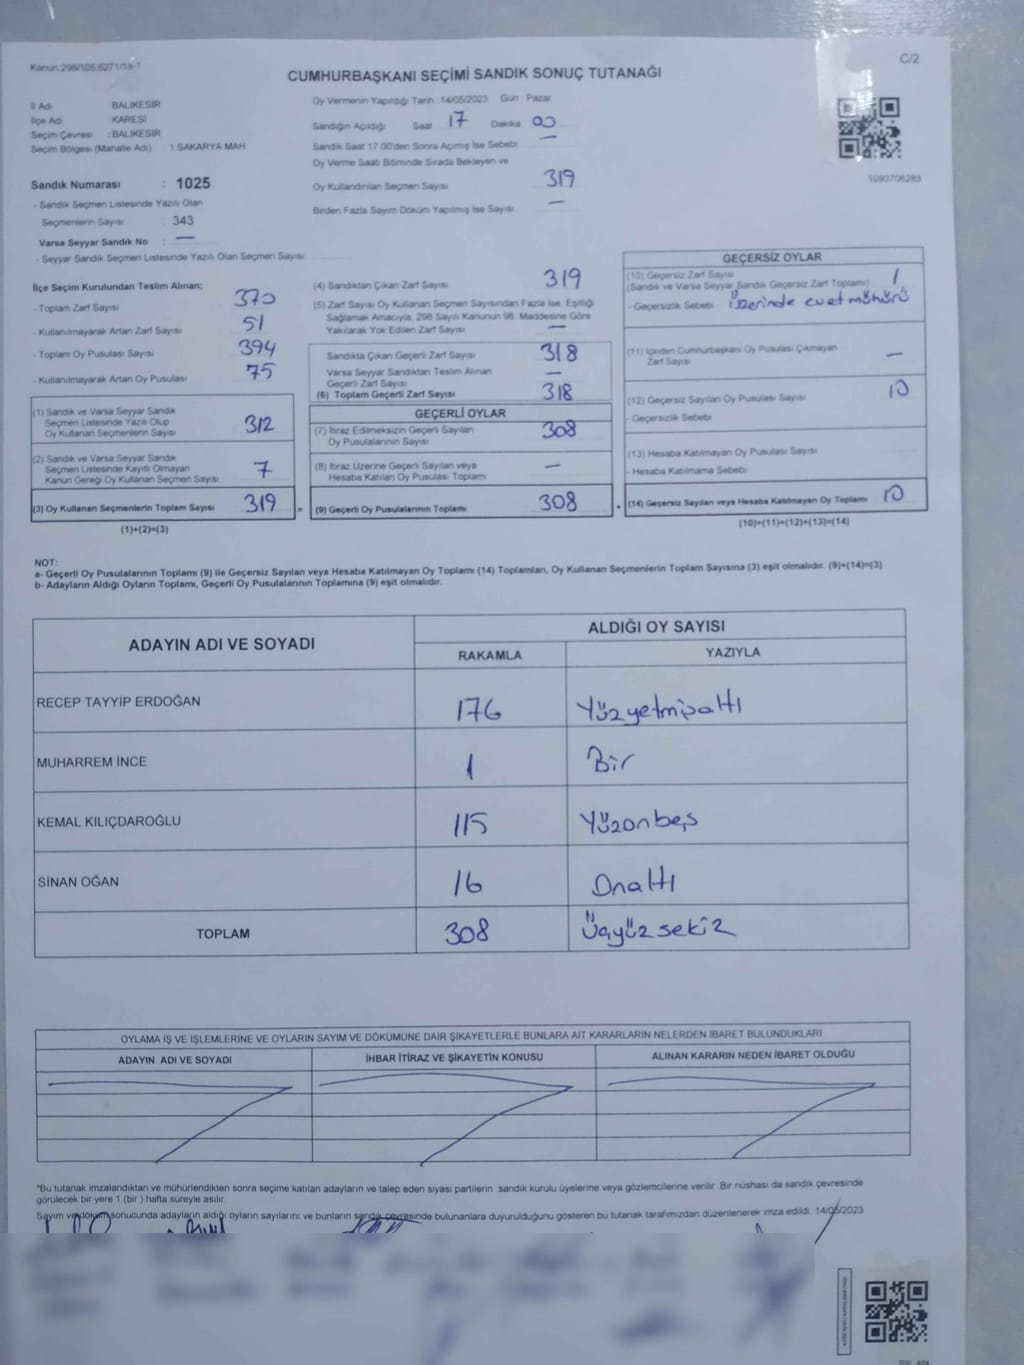 Kanun:298/105;6271/18-1
C/2
CUMHURBAŞKANI SEÇİMİ SANDIK SONUÇ TUTANAĞI
İl Adı BALIKESİR
İlçe Adı KARESİ
Seçim Çevresi : BALIKESİR
Seçim Bölgesi (Mahalle Adı) 1 SAKARYA MAH
Sandık Numarası : 1025
- Sandık Seçmen Listesinde Yazılı Olan
Seçmenlerin Sayısı : 343
Varsa Seyyar Sandık No : —
- Seyyar Sandık Seçmen Listesinde Yazılı Olan Seçmen Sayısı
Oy Vermenin Yapıldığı Tarih :14/05/2023 Gün Pazar
Sandığın Açıldığı Saat 17 Dakika 00
Sandık Saat 17:00'den Sonra Açımış İse Sebebi —
Oy Verme Saati Bitiminde Sırada Bekleyen ve
Oy Kullandırılan Seçmen Sayısı 319
Birden Fazla Sayım Döküm Yapılmış İse Sayısı —
1093706283
İlçe Seçim Kurulundan Teslim Alınan;
- Toplam Zarf Sayısı 370
- Kullanılmayarak Artan Zarf Sayısı 51
- Toplam Oy Pusulası Sayısı 394
- Kullanılmayarak Artan Oy Pusulası 75
(1) Sandık ve Varsa Seyyar Sandık
Seçmen Listesinde Yazılı Olup
Oy Kullanan Seçmenlerin Sayısı 312
(2) Sandık ve Varsa Seyyar Sandık
Seçmen Listesinde Kayıtlı Olmayan
Kanun Gereği Oy Kullanan Seçmen Sayısı 7
(3) Oy Kullanan Seçmenlerin Toplam Sayısı 319
(1)+(2)=(3)
(4) Sandıktan Çıkan Zarf Sayısı 319
(5) Zarf Sayısı Oy Kullanan Seçmen Sayısından Fazla İse, Eşitliği
Sağlamak Amacıyla, 298 Sayılı Kanunun 98. Maddesine Göre
Yakılarak Yok Edilen Zarf Sayısı —
Sandıkta Çıkan Geçerli Zarf Sayısı 318
Varsa Seyyar Sandıktan Teslim Alınan
Geçerli Zarf Sayısı —
(6) Toplam Geçerli Zarf Sayısı 318
GEÇERLİ OYLAR
(7) İtiraz Edilmeksizin Geçerli Sayılan
Oy Pusulalarının Sayısı 308
(8) İtiraz Üzerine Geçerli Sayılan veya
Hesaba Katılan Oy Pusulası Toplamı —
= (9) Geçerli Oy Pusulalarının Toplamı 308
GEÇERSİZ OYLAR
(10) Geçersiz Zarf Sayısı 1
(Sandık ve Varsa Seyyar Sandık Geçersiz Zarf Toplamı)
- Geçersizlik Sebebi Üzerinde evet mührü
(11) İçinden Cumhurbaşkanı Oy Pusulası Çıkmayan
Zarf Sayısı —
(12) Geçersiz Sayılan Oy Pusulası Sayısı 10
- Geçersizlik Sebebi
(13) Hesaba Katılmayan Oy Pusulası Sayısı
- Hesaba Katılmama Sebebi
+ (14) Geçersiz Sayılan veya Hesaba Katılmayan Oy Toplamı 10
(10)+(11)+(12)+(13)=(14)
NOT:
a- Geçerli Oy Pusulalarının Toplamı (9) ile Geçersiz Sayılan veya Hesaba Katılmayan Oy Toplamı (14) Toplamları, Oy Kullanan Seçmenlerin Toplam Sayısına (3) eşit olmalıdır. (9)+(14)=(3)
b- Adayların Aldığı Oyların Toplamı, Geçerli Oy Pusulalarının Toplamına (9) eşit olmalıdır.
ADAYIN ADI VE SOYADI ALDIĞI OY SAYISI
RAKAMLA YAZIYLA
RECEP TAYYİP ERDOĞAN 176 Yüzyetmişaltı
MUHARREM İNCE 1 Bir
KEMAL KILIÇDAROĞLU 115 Yüzonbeş
SİNAN OĞAN 16 Onaltı
TOPLAM 308 Üçyüzsekiz
OYLAMA İŞ VE İŞLEMLERİNE VE OYLARIN SAYIM VE DÖKÜMÜNE DAİR ŞİKAYETLERLE BUNLARA AİT KARARLARIN NELERDEN İBARET BULUNDUKLARI
ADAYIN ADI VE SOYADI İHBAR İTİRAZ VE ŞİKAYETİN KONUSU ALINAN KARARIN NEDEN İBARET OLDUĞU
*Bu tutanak imzalandıktan ve mühürlendikten sonra seçime katılan adayların ve talep eden siyasi partilerin sandık kurulu üyelerine veya gözlemcilerine verilir. Bir nüshası da sandık çevresinde
görülecek bir yere 1 (bir ) hafta süreyle asılır.
Sayım ve döküm sonucunda adayların aldığı oyların sayılarını ve bunların sandık çevresinde bulunanlara duyurulduğunu gösteren bu tutanak tarafımızdan düzenlenerek imza edildi. 14/05/2023